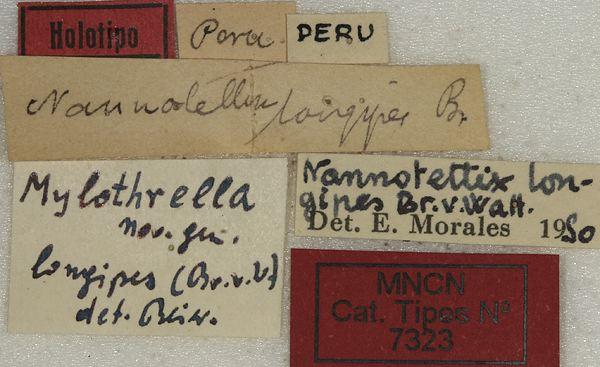 Holotipo
Peru
PERU
Nannotettix longipes Br.
Mylothrella
nov. gen.
longipes (Br. v. W)
det. Beier.
Nannotettix lon-
gipes Br. v. Watt.
Det. E. Morales 1950
MNCN
Cat. Tipos Nº
7323